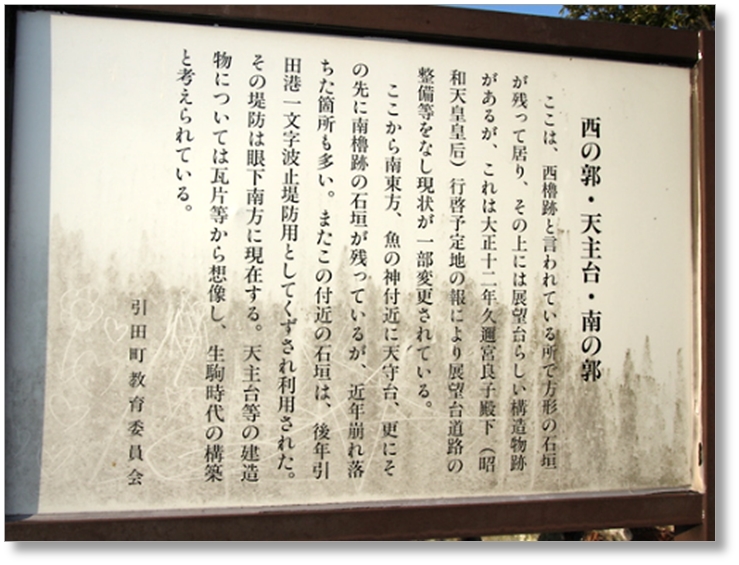 西の郭・天主台・南の郭
ここは、西櫓跡と言われている所で方形の石垣
が残って居り、その上には展望台らしい構造物跡
があるが、これは大正十二年久邇宮良子殿下（昭
和天皇皇后）行啓予定地の報により展望台道路の
整備等をなし現状が一部変更されている。
ここから南東方、魚の神付近に天守台、更にそ
の先に南櫓跡の石垣が残っているが、近年崩れ落
ちた箇所も多い。またこの付近の石垣は、後年引
田港一文字波止堤防用としてくずされ利用された。
その堤防は眼下南方に現在する。天主台等の建造
物については瓦片等から想像し、生駒時代の構築
と考えられている。
引田町教育委員会